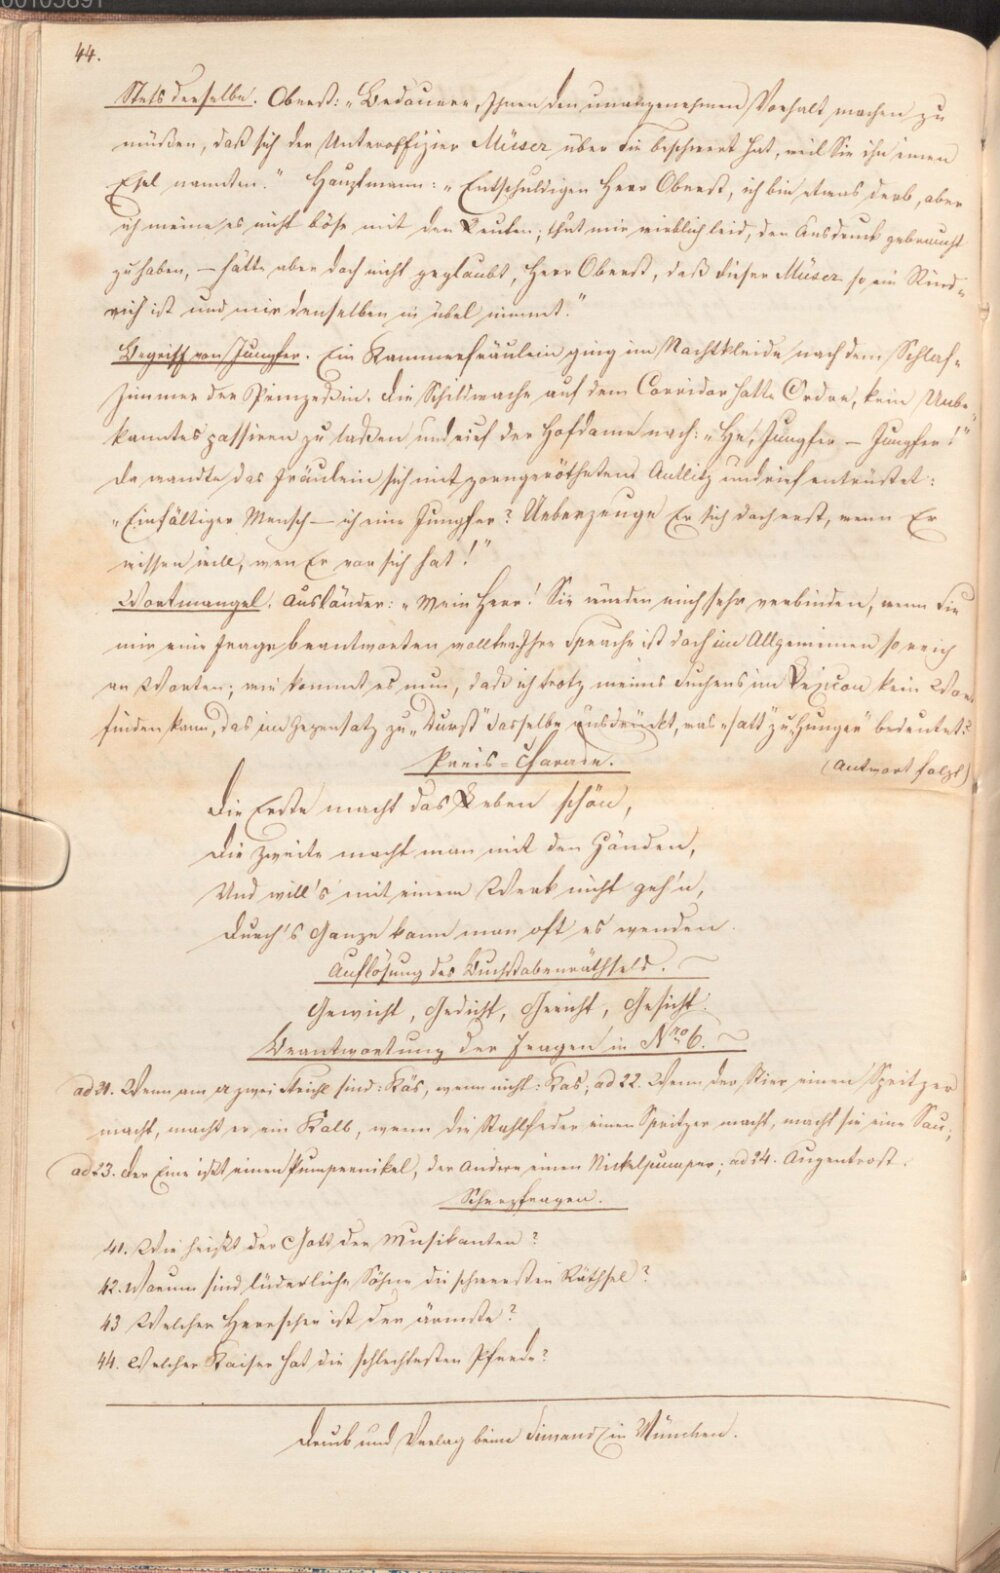 00105891
44.
Stets derselbe. Oberst: „Bedauere, Ihnen den unangenehmen Vorhalt machen zu
müßen, daß sich der Unteroffizier Müser über Sie beschwert hat, weil Sie ihn einen
Esel nannten." Hauptmann: „Entschuldigen Herr Oberst, ich bin etwas derb, aber
ich meine es nicht böse mit den Leuten; thut mir wirklich leid, den Ausdruck gebraucht
zu haben, – hätte aber doch nicht geglaubt, Herr Oberst, daß dieser Müser so ein Rind-
vieh ist und mir denselben in übel nimmt."
Begriff von Jungfer. Ein Kammerfräulein ging im Nachtkleide nach dem Schlaf-
Zimmer der Prinzeßin. Die Schildwache auf dem Corridor hatte Ordre, kein Unbe-
kanntes passiren zu laßen und rief der Hofdame nach: „He, Jungfer – Jungfer!"
Da wandte das Fräulein sich mit zorngeröthetem Antlitz und rief entrüstet:
„Einfältiger Mensch – ich eine Jungfer? Ueberzeuge Er sich doch erst, wenn Er
wissen will, wen Er vor sich hat!"
Wortmangel. Ausländer: „Mein Herr! Sie würden mich sehr verbinden, wenn Sie
mir eine Frage beantworten wollten. Ihre Sprache ist doch im Allgemeinen so reich
an Worten; wie kommt es nun, daß ich trotz meines Suchens im Lexicon kein Wort
finden kann, das im Gegensatz zu „Durst" dasselbe ausdrückt, was „satt" zu „Hunger" bedeutet?
(Antwort folgt)
Preis-Charade.
Die Erste macht das Leben schön,
Die Zweite macht man mit den Händen,
Und will's mit einem Werk nicht geh'n,
Durch's Ganze kann man oft es wenden.
Auflösung des Buchstabenräthsels.
Gewicht, Gedicht, Gericht, Gesicht.
Beantwortung der Fragen in Nro 6.
ad 21. Wenn am a zwei Strichl sind: Käs, wenn nicht: Kas; ad 22. Wenn der Stier einen Spritzer
macht, macht er ein Kalb, wenn die Stahlfeder einen Spritzer macht, macht sie eine Sau;
ad 23. Der Eine ißt einen Pumpernikel, der Andere einen Nickelpumper; ad 24. Augentrost.
Scherzfragen.
41. Wie heißt der Gott der Musikanten?
42. Warum sind lüderliche Söhne die schwersten Räthsel?
43 Welcher Herrscher ist der ärmste?
44. Welcher Kaiser hat die schlechtesten Pferde?
Druck und Verlag beim in München.